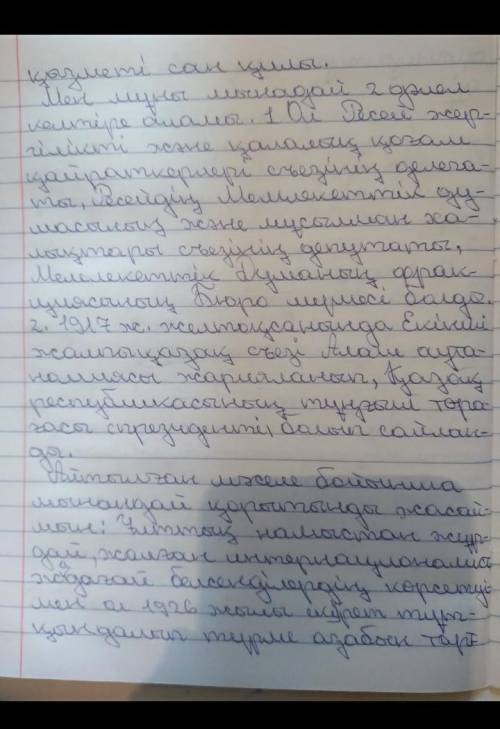 қызметі сан қилы.
Мен мұны мынадай 2 дәлел
келтіре аламы. 1 Ол Ресей жер-
гілікті және қалалық қоғам
қайраткерлері съезінің делега-
ты, Ресейдің Мемлекеттік ду-
масының және мұсылман ха-
лықтары съезінің депутаты,
Мемлекеттік Думаның фрак-
циясының Бюро мүшесі болды.
2. 1917 ж. желтоқсанында Екінші
жалпықазақ съезі Алаш авто-
намиясы жарияланып, Қазақ
республикасының тұңғыш төра-
ғасы спрезиденті, болып сайлан-
ды.
Айтылған мәселе бойынша
мынандай қорытынды жасай-
мын: Ұлттық намыстан жұр-
дай, жалған интернационалист
жадағай белсенділердің көрсетуі-
мен ол 1926 жылы екі рет тұтқ-
қындалып түрме азабын тарт